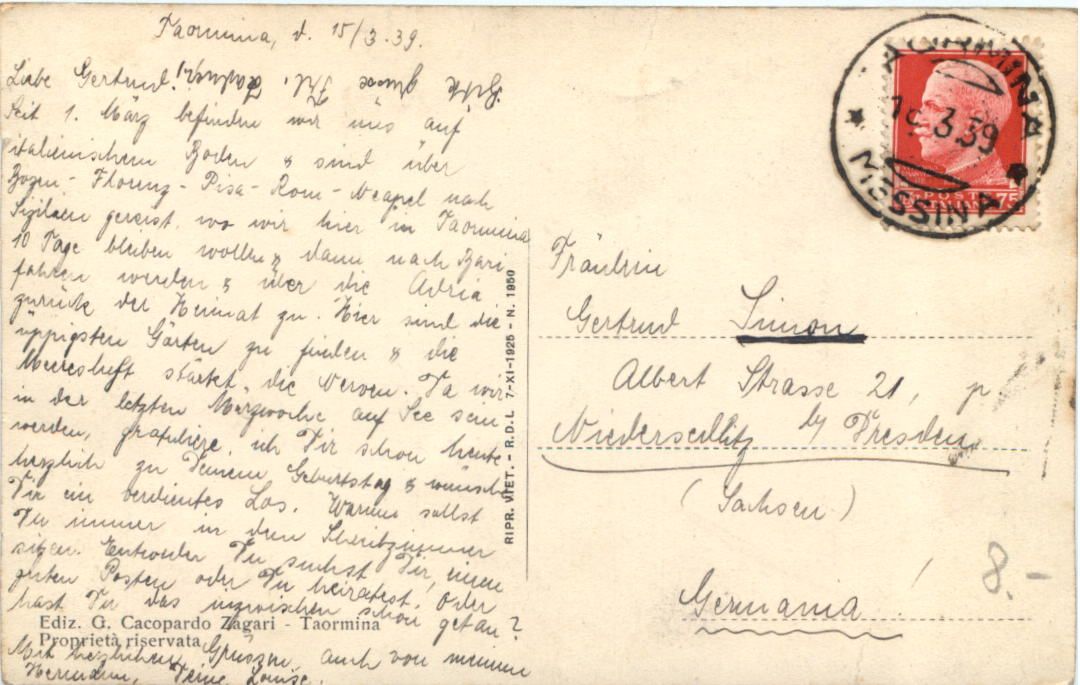 Taormina, d. 15/3.39.
Liebe Gertrud!
Seit 1. März befinden wir uns auf
italienischem Boden & sind über
Bozen - Florenz - Pisa - Rom - Neapel nach
Sizilien gereist, wo wir hier in Taormina
10 Tage bleiben wollen & dann nach Bari
fahren werden & über die Adria
zurück der Heimat zu. Hier sind die
üppigsten Gärten zu finden & die
Meeresluft stärkt die Nerven. Da wir
in der letzten Märzwoche auf See sein
werden, gratuliere ich Dir schon heute
herzlich zu Deinem Geburtstag & wünsche
Dir ein verdientes Los. Warum sollst
Du immer in dem
sitzen. Entweder Du suchst Dir einen
guten Posten oder Du heiratest. Oder
hast Du das inzwischen schon getan?
Mit herzlichen Grüszen, auch von meinem
Hermann, Deine Louise.
Ediz. G. Cacopardo Zagari - Taormina
Proprietà riservata
RIPR. VIET. - R.D.L. 7-XI-1925 - N. 1950
TAORMINA
3.39
MESSINA
POSTE
ITALIANE
75
Fräulein
Gertrud Simon
Albert Strasse 21, p
Niedersedlitz by Dresden
(Sachsen)
Germania!
8.-